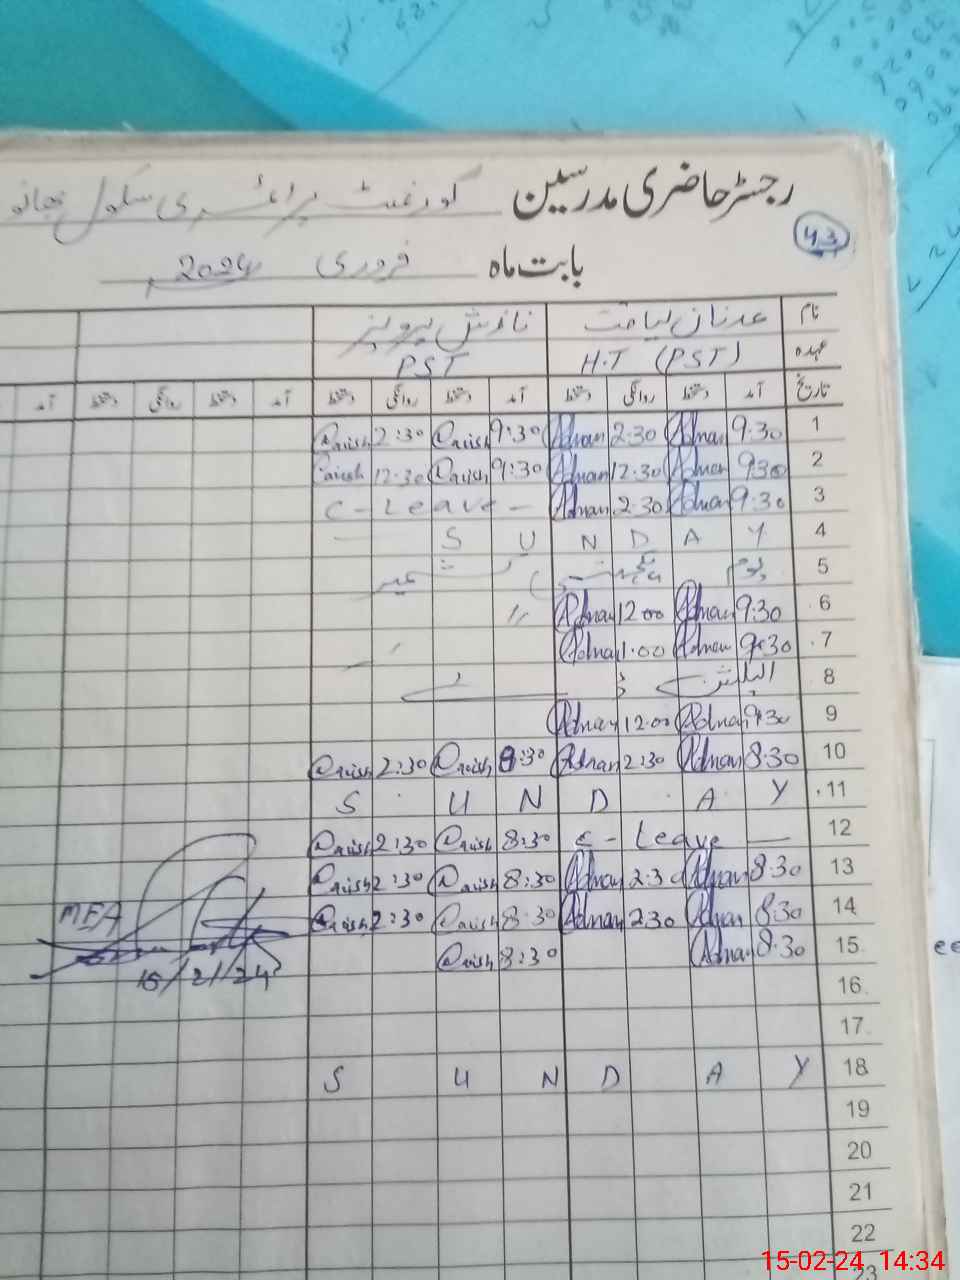 رجسٹر حاضری مدرسین گورنمنٹ پرائمری سکول
43
بابت ماہ فروری 2024
نام عدنان لیاقت
عہدہ H.T (PST) PST
تاریخ آمد دستخط روانگی دستخط آمد دستخط روانگی دستخط آمد دستخط روانگی دستخط آمد
1 9:30 Adnan 2:30 Adnan 9:30 2:30
2 930 Adnan 12:30 Adnan 9:30 12:30
3 9:30 Adnan 2:30 Adnan C - Leave -
4 S U N D A Y
5 یوم یکجہتی کشمیر
6 9:30 Adnan 12:00 Adnan "
7 9:30 Adnan 1:00 Adnan
8 الیکشن
9 9:30 Adnan 12:00 Adnan
10 8:30 Adnan 2:30 Adnan 8:30 2:30
11 S U N D A Y
12 C - Leave - 8:30 2:30
13 8:30 Adnan 2:30 Adnan 8:30 2:30
14 8:30 Adnan 2:30 Adnan 8:30 2:30
MEA
15 8:30 Adnan 8:30
15/2/24
16
17
18 S U N D A Y
19
20
21
22
23
15-02-24 14:34